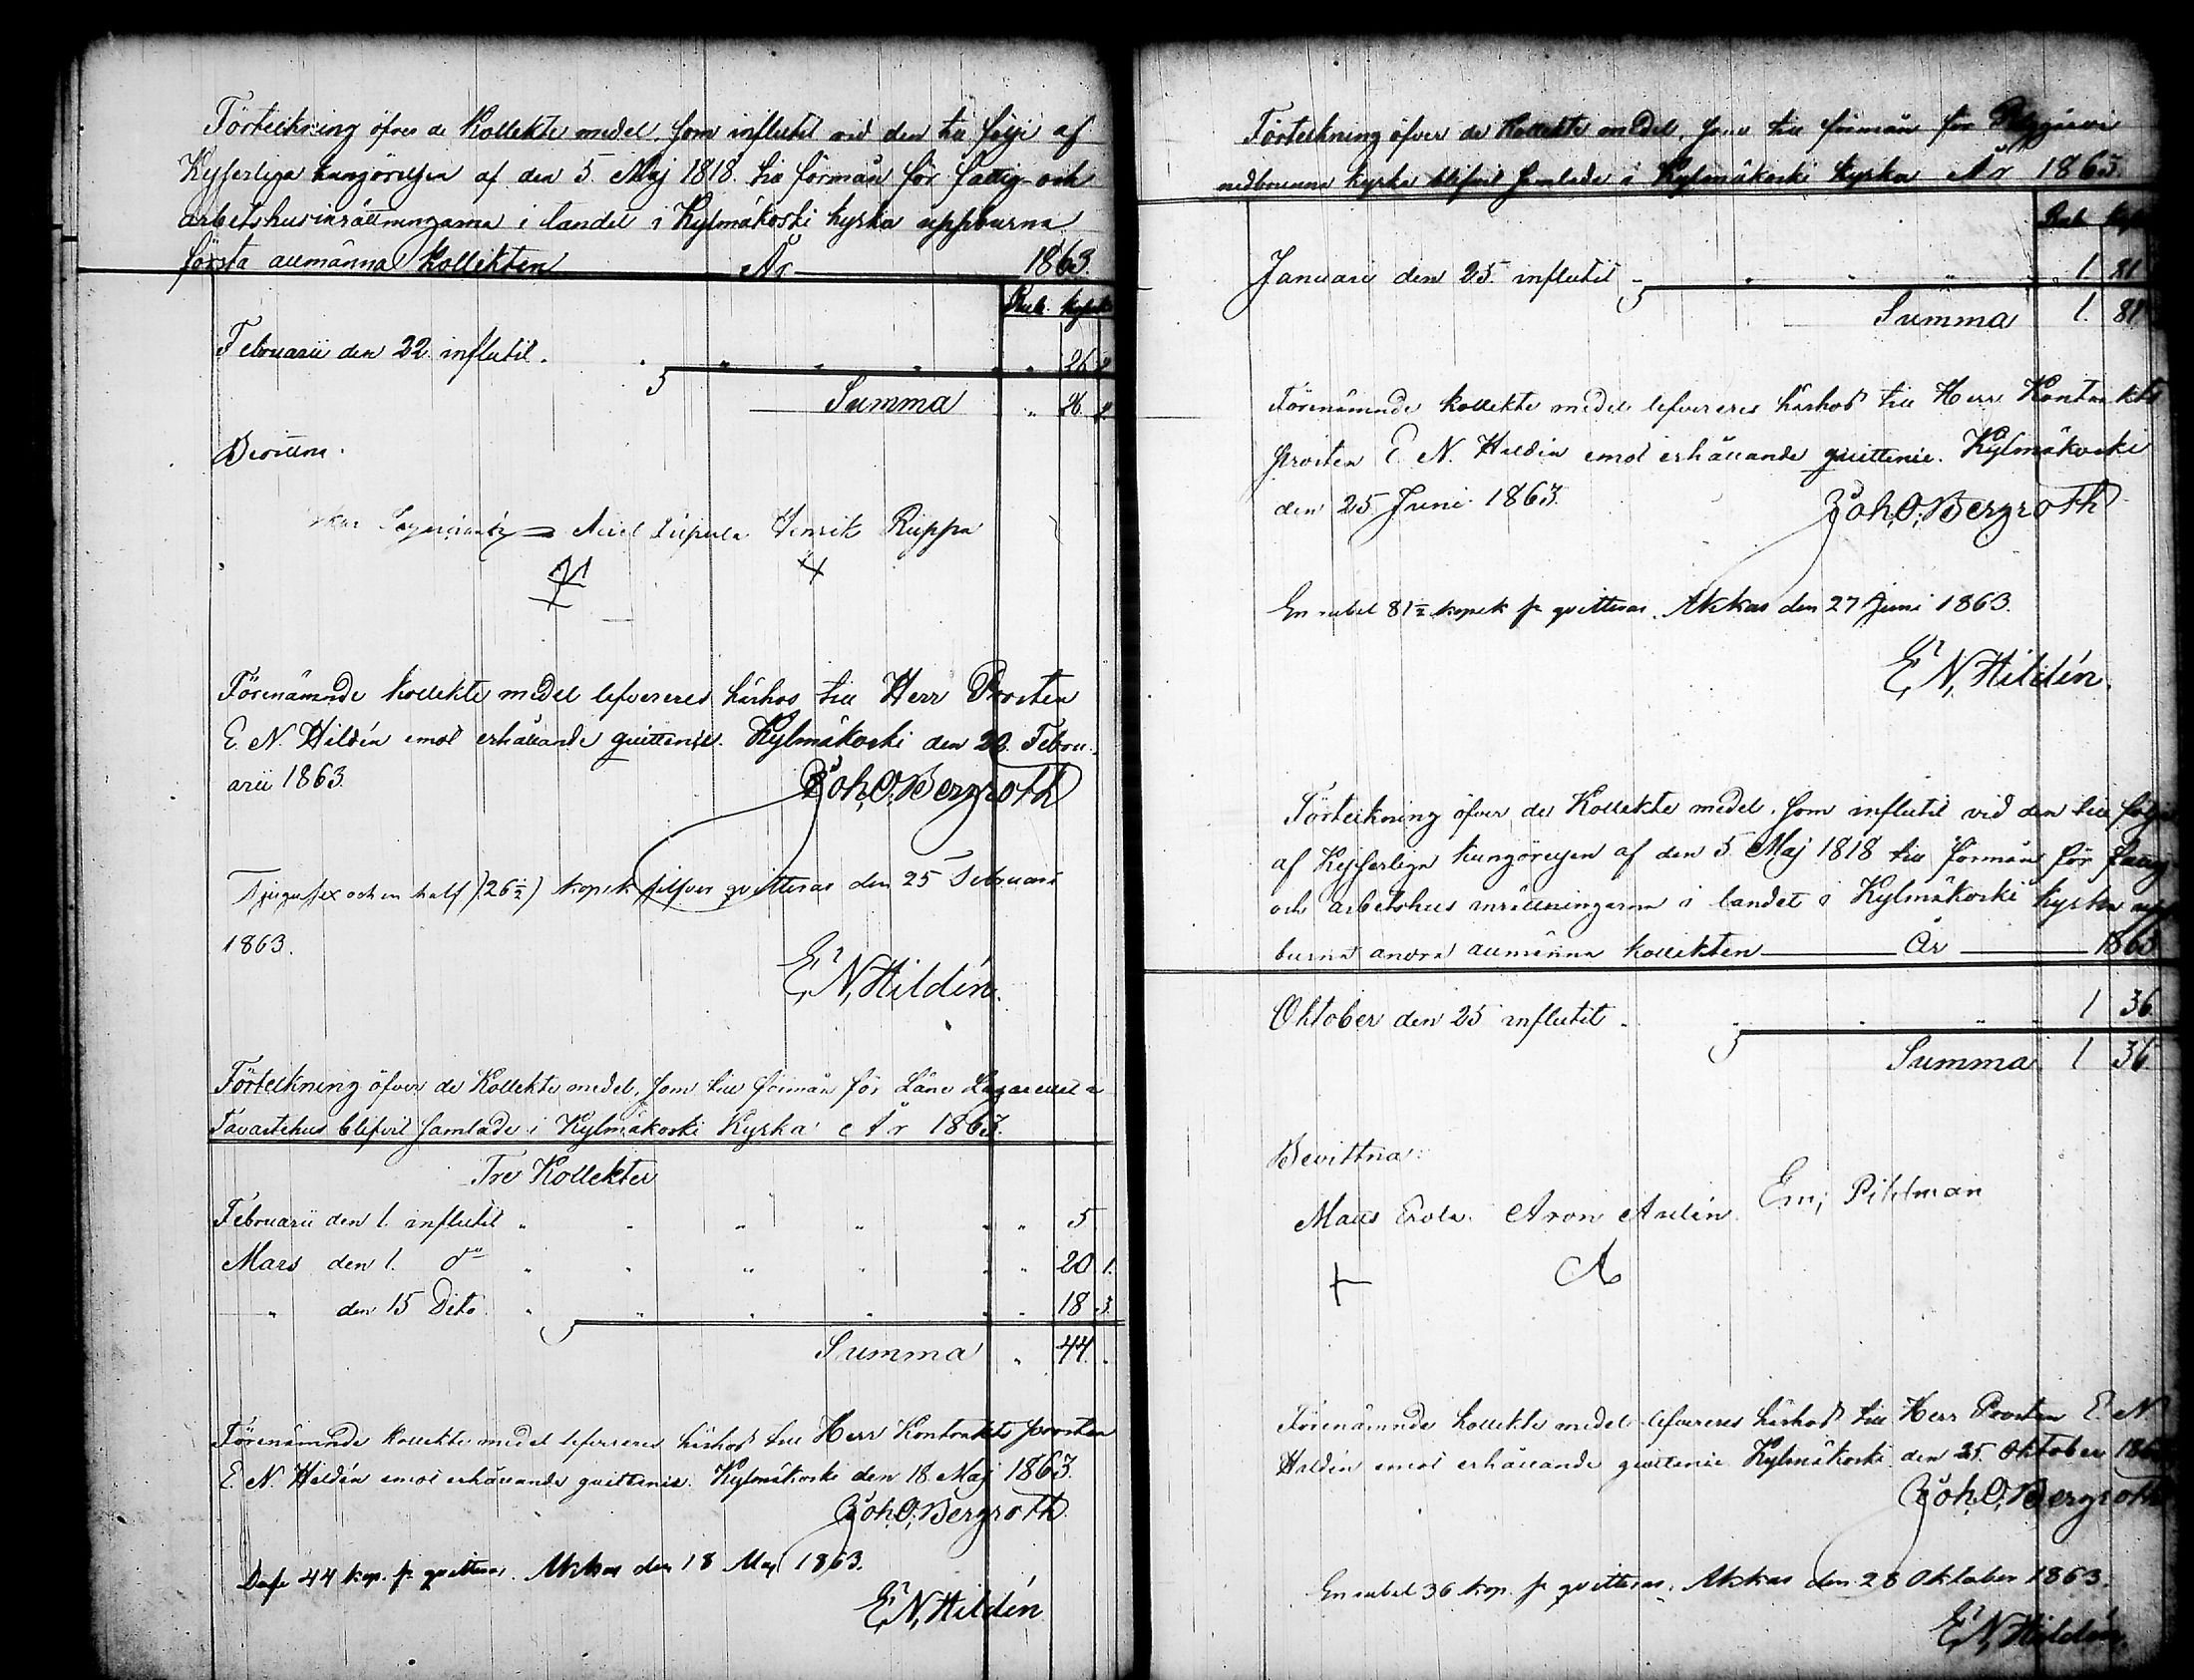 Förteckning öfver de Kollekte medel, som influtit vid den till följe af
Kejserliga kungörelsen af den 5. Maj 1818. till förmån för fattig- och
arbetshusinrättningarna i landet i Kylmäkoski kyrka uppburna
första allmänna Kollekten År 1863.
Rub. kopek
Februarii den 22. influtit. 26 ½
Summa 26. ½
Bevittna.
Henrik Ruppa
Förenämnde kollekte medel lefvereres härhos till Herr Prosten
E. N. Hildén emot erhållande qvittence. Kylmäkoski den 22. Febru-
arii 1863.
Joh. O. Bergroth
Tjugusex och en half (26 ½) kopek silfver qvitteras den 25 Februari
1863.
E. N. Hildén.
Förteckning öfver de Kollekte medel, som till förmån för Läne Lazarettet i
Tavastehus blifvit samlade i Kylmäkoski Kyrka År 1863.
Tre Kollekter
Februarii den 1. influtit 5
Mars den 1. do 20 1.
" den 15 Dito 18 3.
Summa 44.
Förenämnde kollekte medel lefvereres härhos till Herr Kontrakts prosten
E. N. Hildén emot erhållande qvittence. Kylmäkoski den 18 Maj 1863.
Joh. O. Bergroth
44 kop. sr qvitteras. Akkas den 18 Maj 1863.
E. N. Hildén
Förteckning öfver de Kollekte medel, som till förmån för
nedbrunna kyrka blifvit samlade i Kylmäkoski kyrka År 1863.
Rub. kopek
Januari den 25. influtit 1 81
Summa 1. 81
Förenämnde kollekte medel lefvereres härhos till Herr Kontrakts
prosten E. N. Hildén emot erhållande qvittence. Kylmäkoski
den 25. Juni 1863.
Joh. O. Bergroth
En rubel 81 ½ kopek sr qvitteras. Akkas den 27 Juni 1863.
E. N. Hildén.
Förteckning öfver de Kollekte medel, som influtit vid den till följe
af Kejserliga kungörelsen af den 5 Maj 1818 till förmån för fattig
och arbetshus inrättningarna i landet i Kylmäkoski kyrka upp
burna andra allmänna kollekten År 1863
Oktober den 25 influtit 1 36.
Summa 1 36.
Bevittna:
Matts Erola. Aron Aulin. Em; Pihlman
A
Förenämnde kollekte medel lefvereres härhos till Herr Prosten E. N.
Hildén emot erhållande qvittence Kylmäkoski den 25. Oktober 1863
Joh. O. Bergroth
En rubel 36 kop. sr qvitteras. Akkas den 28 Oktober 1863.
E. N. Hildén.